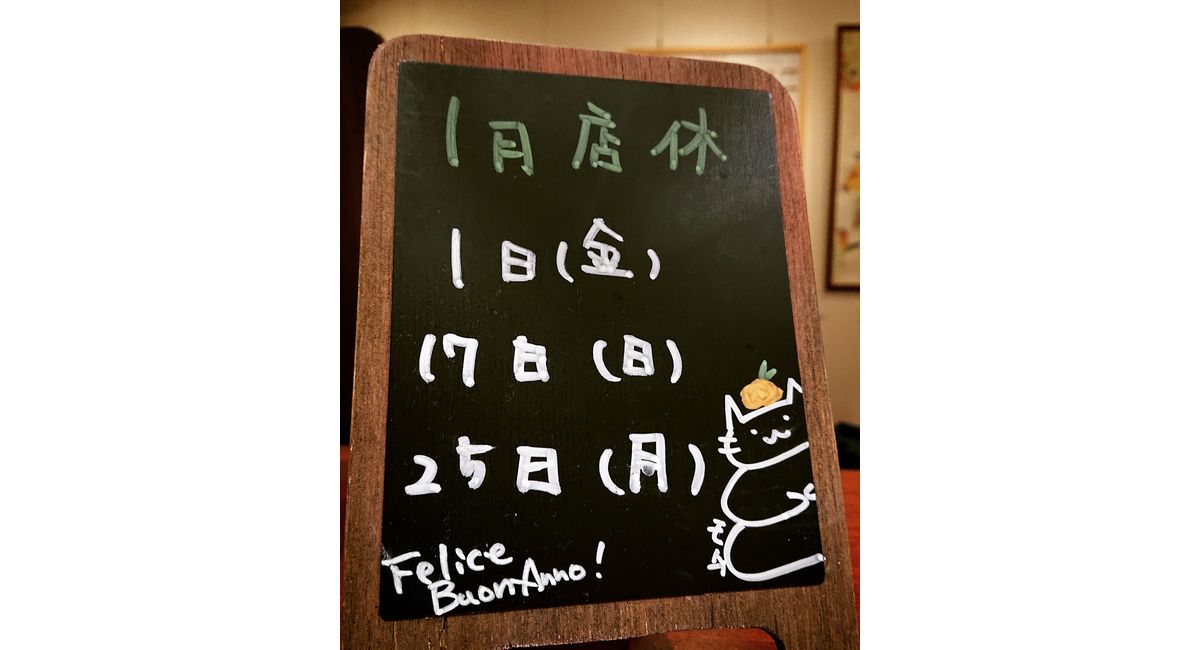 1月店休
1日(金)
17日(日)
25日(月)
Felice
BuonAnno!